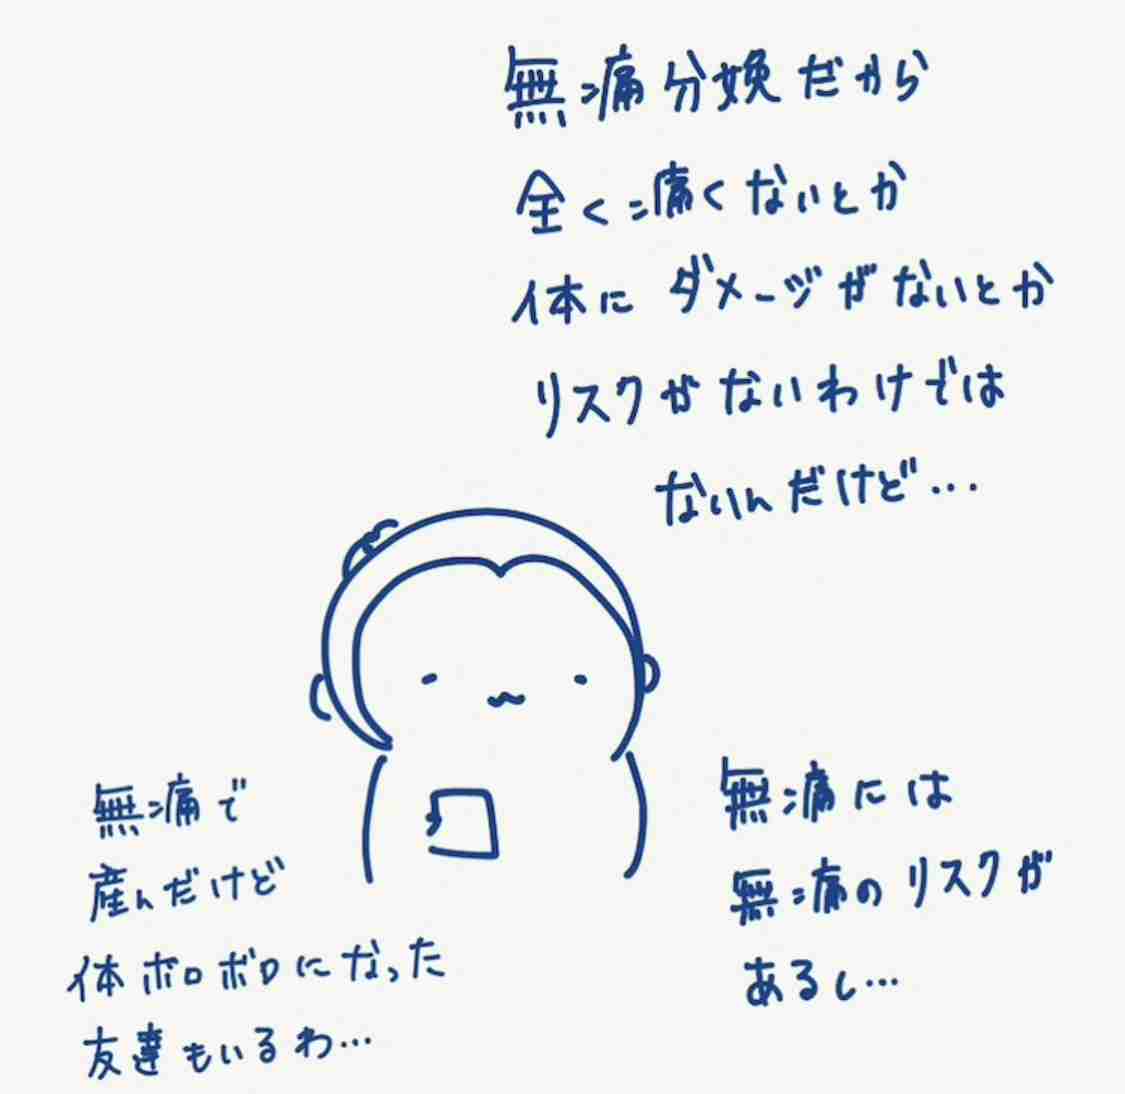 無痛分娩だから
全く痛くないとか
体にダメージがないとか
リスクがないわけでは
ないんだけど…
無痛で
産んだけど
体ボロボロになった
友達もいるわ…
無痛には
無痛のリスクが
あるし…